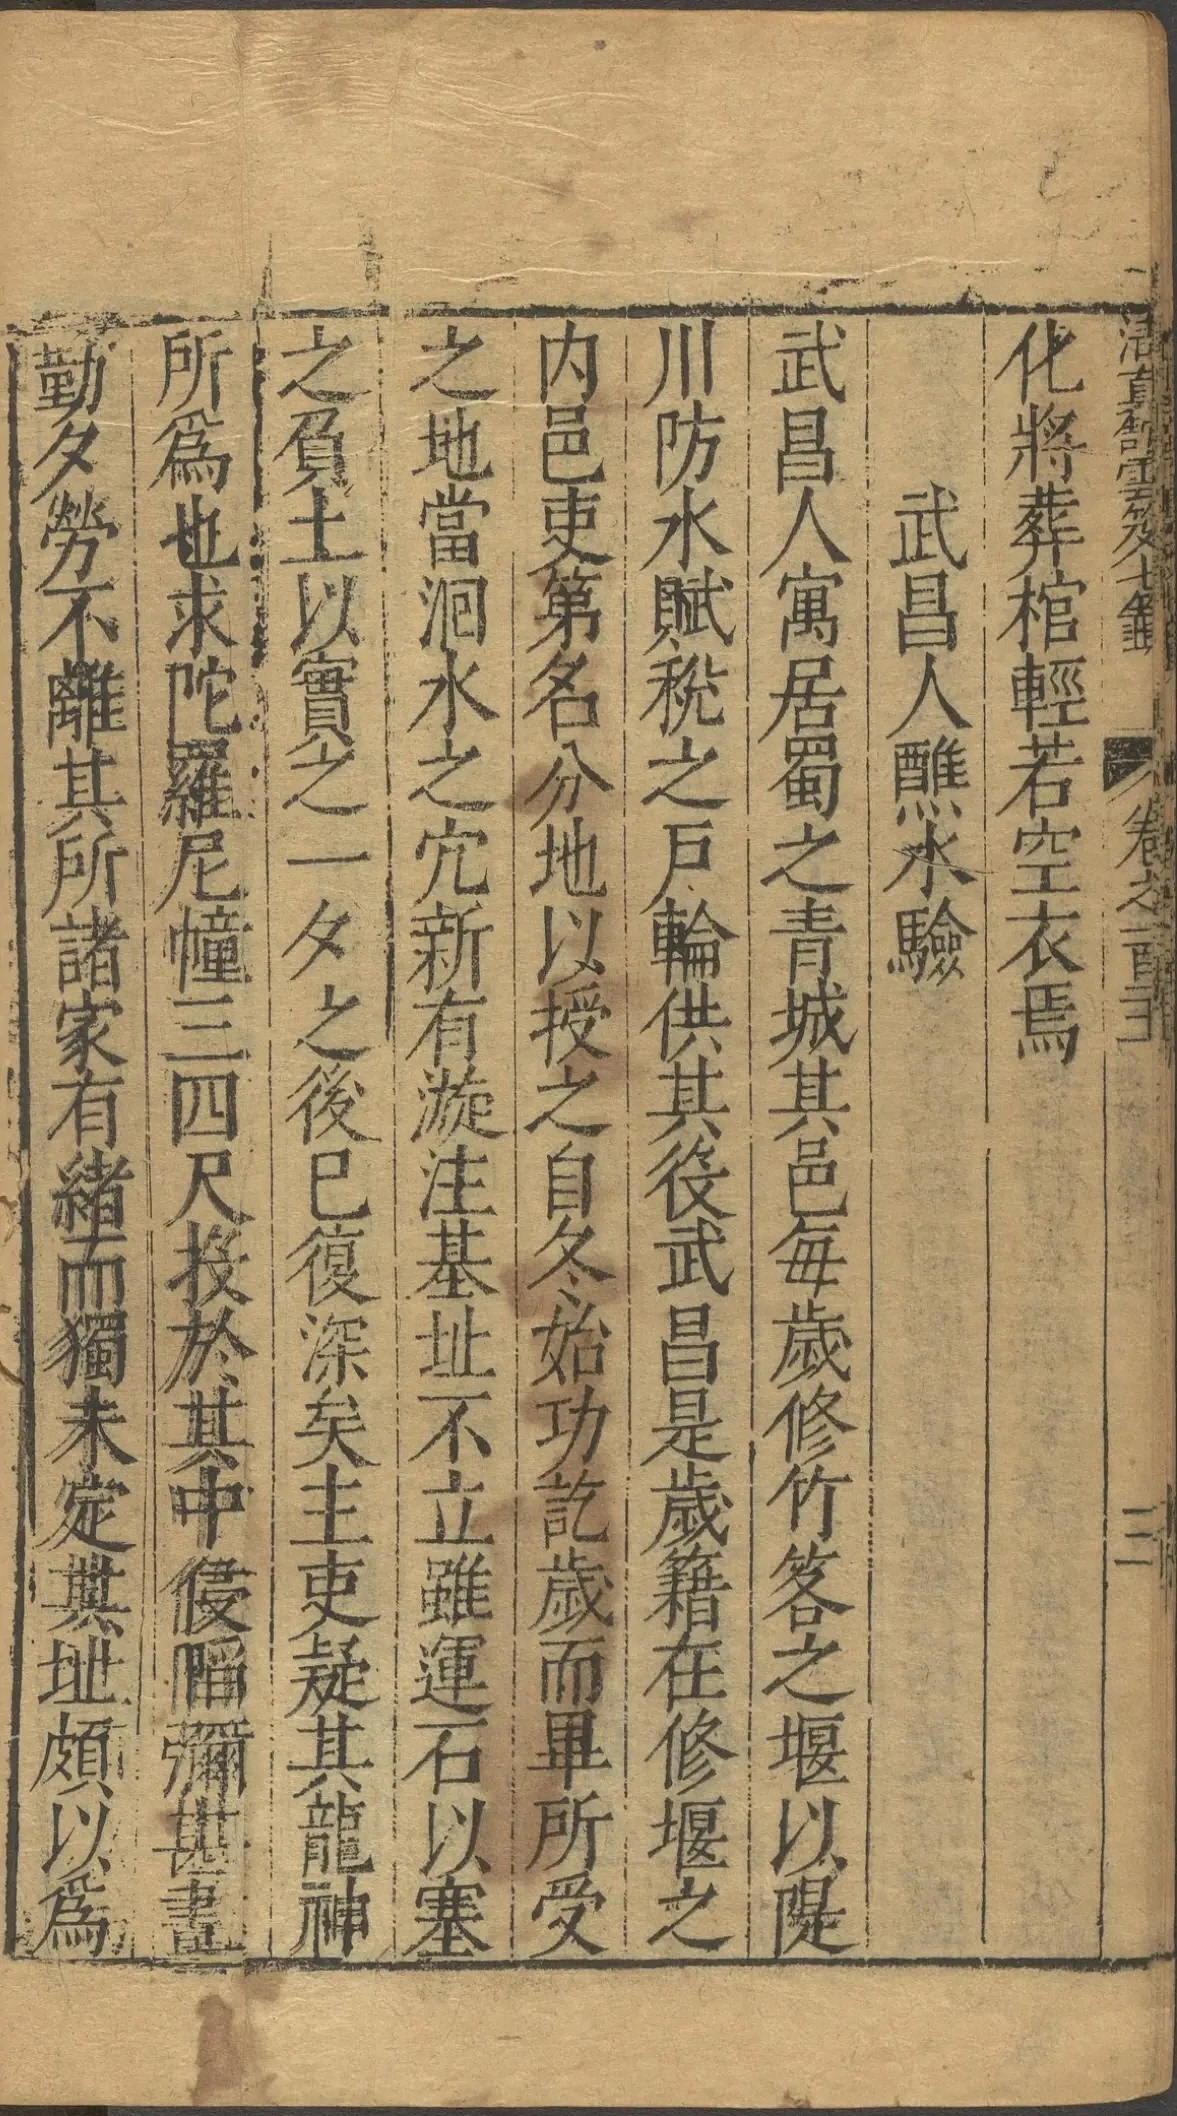 清真館雲笈七籤
卷之一百二十一
三
化將葬棺輕若空衣焉
武昌人醮水驗
武昌人寓居蜀之青城其邑每歲修竹笿之堰以隄
川防水賦稅之戶輪供其役武昌是歲籍在修堰之
内邑吏第名分地以授之自冬始功訖歲而畢所受
之地當洄水之穴新有漩注基址不立雖運石以塞
之負土以實之一夕之後已復深矣主吏疑其龍神
所爲也求陀羅尼幢三四尺投於其中侵䧟彌甚晝
勤夕勞不離其所諸家有緒而獨未定其址頗以爲